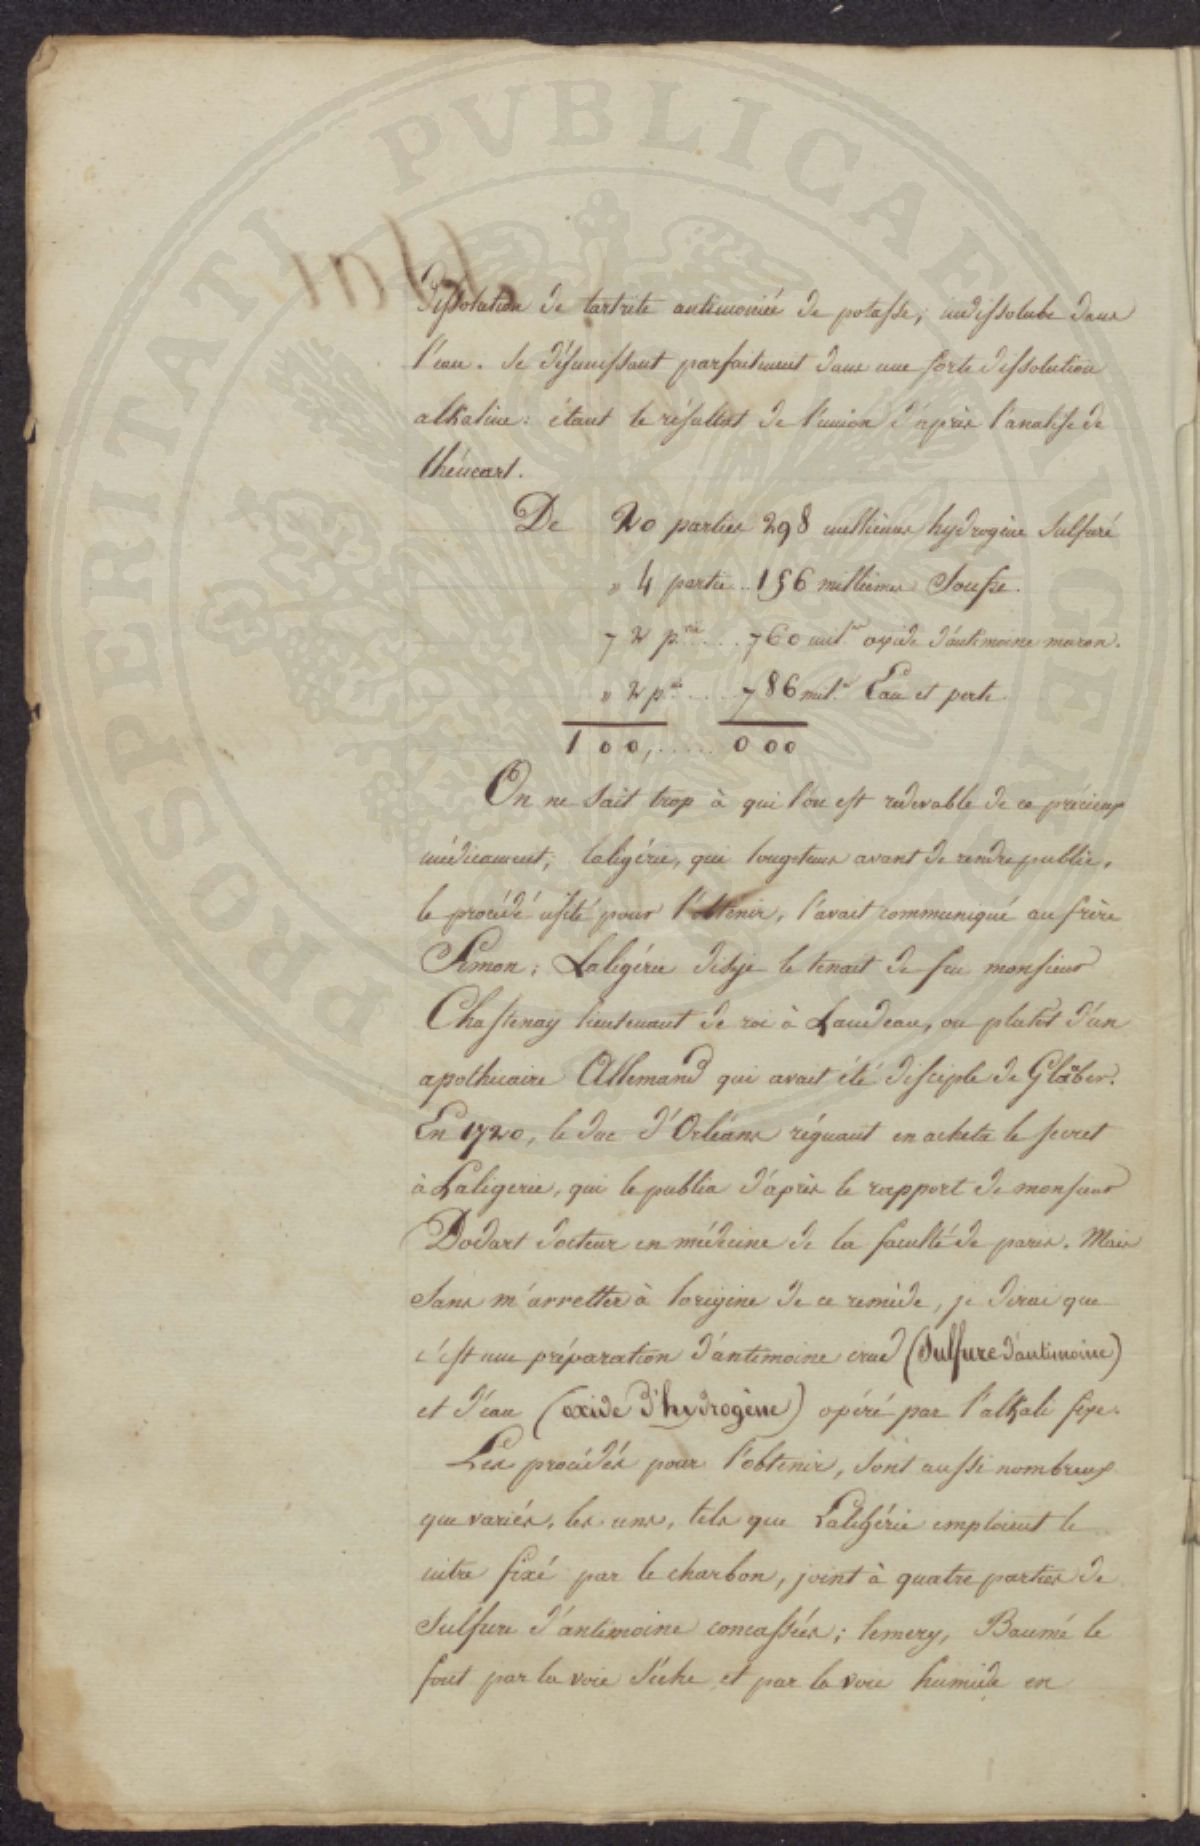 Dissolution de tartrite antimoniée de potasse, indissolube dans
l'eau. Se désunissant parfaitement dans une forte dissolution
alkaline: étant le résultat de l'union d'après l'analise de
thénart.
De 20 parties 298 millièmes hydrogène sulfuré
" 4 partie .. 156 millièmes Soufre.
72 p.tie .... 760 mil.e oxide d'antimoine maron.
" 2 p.tie .... 786 mil.e Eau et perte.
100, ..... 000
On ne sait trop à qui l'on est redevable de ce précieux
médicament; laligérie, qui longstems avant de rendre public,
le procédé usité pour l'obtenir, l'avait communiqué au frère
Simon; Laligérie disje le tenait de feu monsieur
Chastenay lieutenant de roi à Landeau, ou plutôt d'un
apothicaire Allemand qui avait été disciple de Glaber.
En 1720, le duc d'Orléans régnant en acheta le secret
à Laligerie, qui le publia d'après le rapport de monsieur
Dodart docteur en médecine de la faculté de paris. Mais
sans m'arretter à l'origine de ce remède, je dirai que
c'est une préparation d'antimoine crud (Sulfure d'antimoine)
et d'eau (oxide d'hydrogène) opéré par l'alkali fixe.
Les procédés pour l'obtenir, sont aussi nombreux
que variés, les uns, tels que Laligérie emploient le
nitre fixé par le charbon, joint à quatre parties de
sulfure d'antimoine concassées; lemery, Baumé le
font par la voie sèche et par la voie humide en
PROSPERITATI PUBLICAE